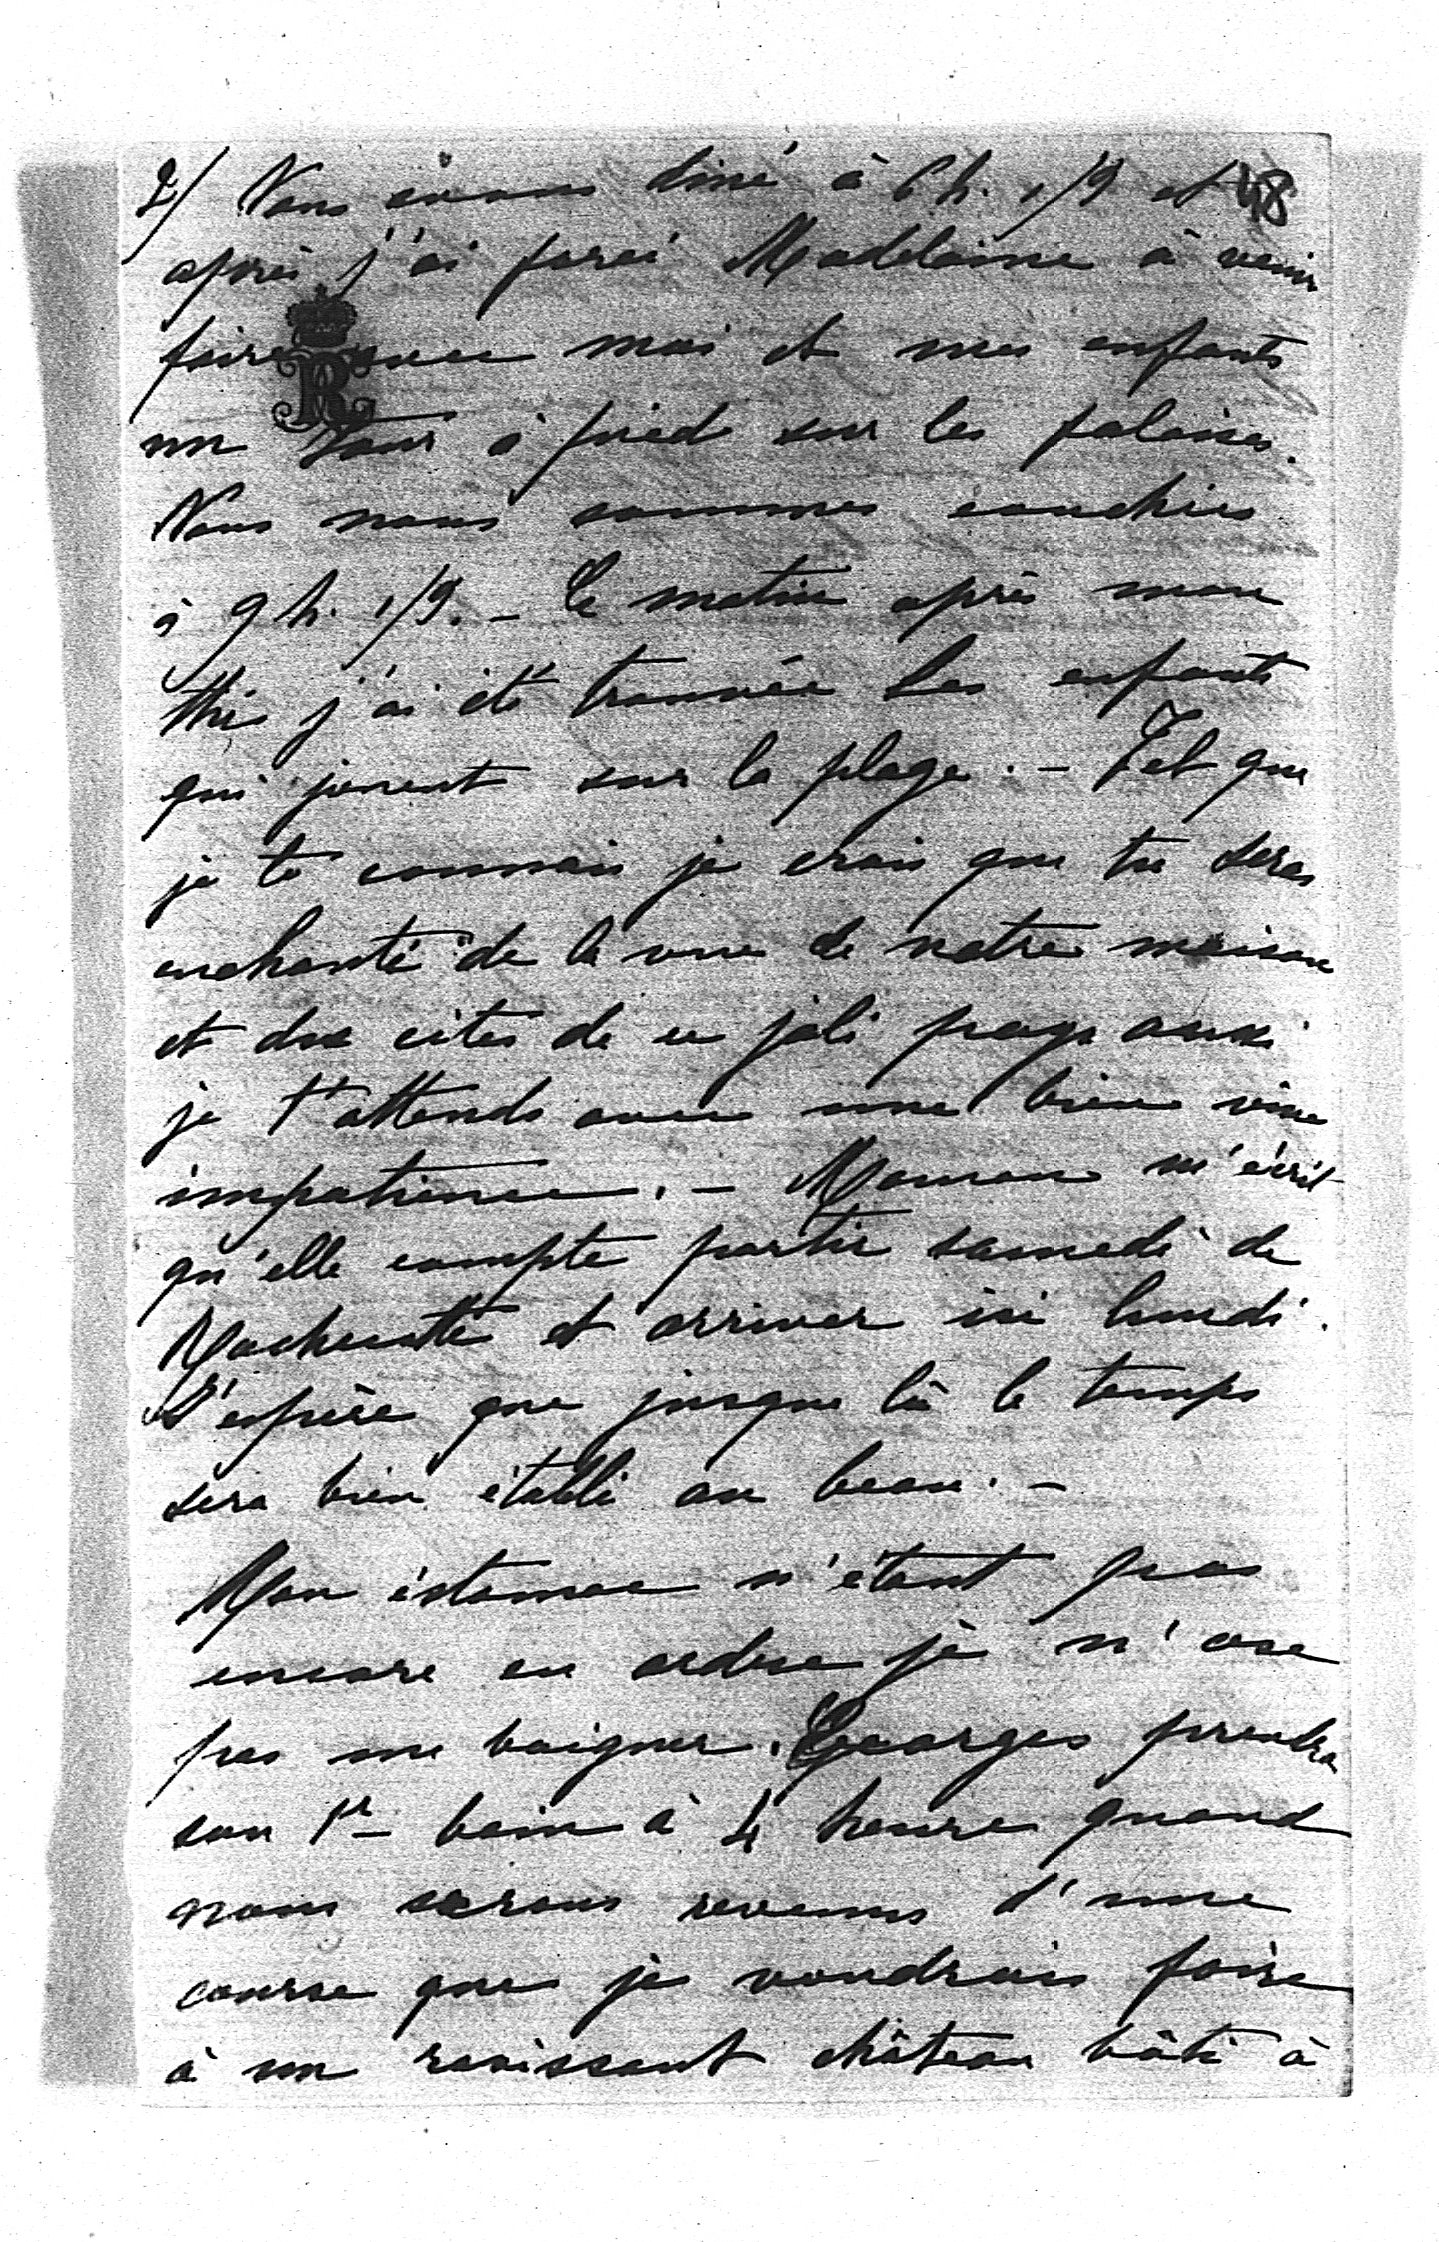 2/ Nous avons diné à 6 h. 1/2 et 48
après j'ai forcé Madelaine à venir
faire avec moi et mes enfants
un tour à pied sur les falaises.
Nous nous sommes couchés
à 9 h. 1/2. – Ce matin après mon
thé j'ai été trouvée les enfants
qui jouent sur la plage. – Tel que
je te connais je crois que tu seras
enchanté de la vue de notre maison
et des sites de ce joli pays aussi
je t'attends avec une bien vive
impatience. – Maman m'écrit
qu'elle compte partir samedi de
et arriver ici lundi.
J'espère que jusque là le temps
sera bien établi au beau. –
Mon éstomac n'étant pas
encore en ordre je n'ose
pas me baigner. Georges prendra
son 1r bain à 4 heure quand
nous serons revenus d'une
course que je voudrais faire
à un ravissant château bâti à